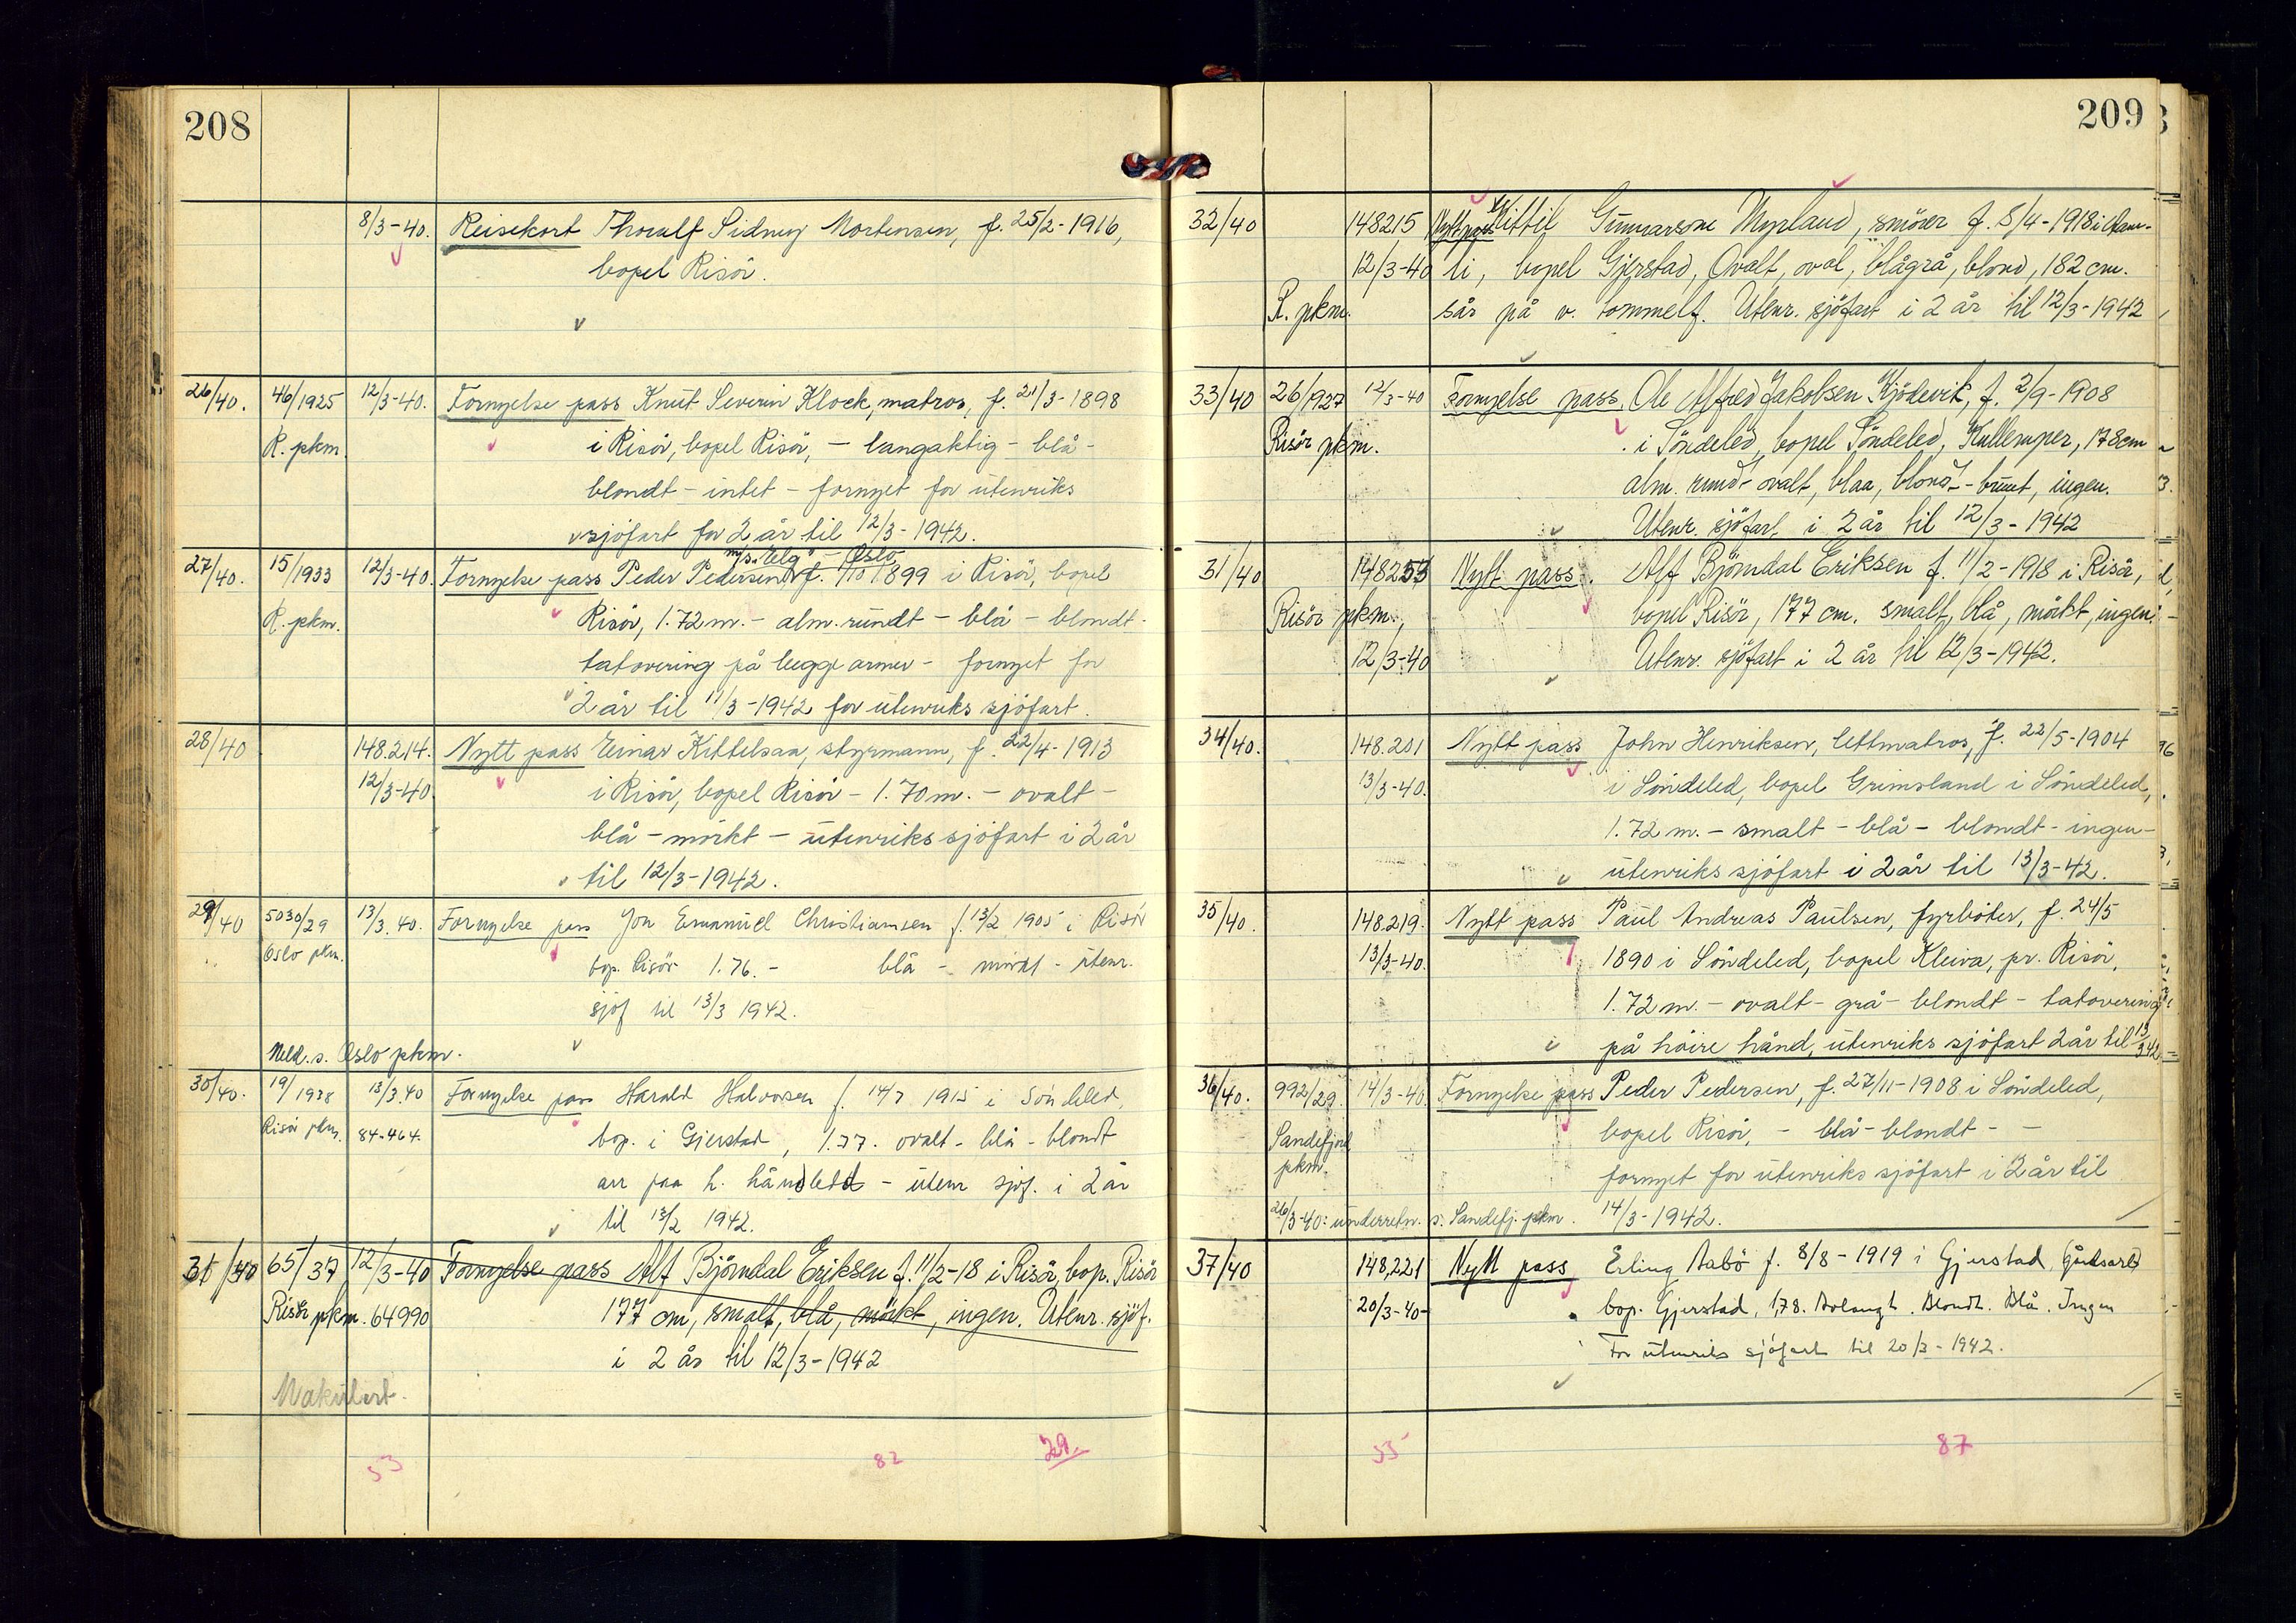 208
8/3-40. Reisekort Thoralf Sidney Mortensen, f. 25/2-1916,
bopel Risör.
26/40. 46/1925 12/3-40. Fornyelse pass Knut Severin Klock, matros, f. 21/3-1898
R. pkm. i Risör, bopel Risör, - langaktig - blå -
blondt - intet - fornyet for utenriks
sjöfart for 2 år til 12/3-1942.
m/s. "Elg" - Oslo
27/40. 15/1933 12/3-40. Fornyelse pass Peder Pedersen f. 1/10 1899 i Risör, bopel
R. pkm. Risör, 1.72 m. - alm. rundt - blå - blondt -
tatovering på begge armer - fornyet for
2 år til 11/3-1942 for utenriks sjöfart.
28/40 148.214. Nytt pass Einar Kittelsaa, styrmann, f. 22/4-1913
12/3-40. i Risör, bopel Risör - 1.70 m. - ovalt -
blå - mörkt - utenriks sjöfart i 2 år
til 12/3-1942.
29/40 5030/29 13/3.40. Fornyelse pass Jon Emanuel Christiansen f. 13/2 1905 i Risör
Oslo pkm. bop. Risör 1.76. - blå - mörkt - utenr.
sjöf til 13/3 1942.
Meld. s. Oslo pkm.
30/40. 19/1938 13/3.40 Fornyelse pass Harald Halvorsen f. 14/7 1915 i Söndeled,
Risör pkm. 84-464. bop. i Gjerstad, 1.77. ovalt - blå - blondt
arr paa h. håndledd - utenr sjöf. i 2 år
til 13/2 1942.
31/40 65/37 12/3-40 Fornyelse pass Alf Björndal Eriksen f. 11/2-18 i Risör, bop. Risör
Risör pkm. 64990 177 cm, smalt, blå, mörkt, ingen. Utenr. sjöf.
i 2 år til 12/3-1942
Makulert.
53 82 29
209
32/40 148215 Nytt pass Kittil Gunnarsone Myrland, smörer f. 8/4-1918 i
12/3-40 li, bopel Gjerstad, Ovalt, oval, blågrå, blond, 182 cm.
R. pkm. sår på v. tommelf. Utenr. sjöfart i 2 år til 12/3-1942
33/40 26/927 12/3-40 Fornyelse pass, Ole Alfred Jakobsen Kjödevik, f. 2/9-1908
Risör pkm. i Söndeled, bopel Söndeled, Kullemper, 178 cm
alm. rund - ovalt, blaa, blond - brunt, ingen.
Utenr. sjöfart i 2 år til 12/3-1942
31/40 148253 Nytt pass. Alf Björndal Eriksen f. 11/2-1918 i Risör,
Risör pkm., bopel Risör, 177 cm. smalt, blå, mörkt, ingen.
12/3-40 Utenr. sjöfart i 2 år til 12/3-1942.
34/40. 148.201 Nytt pass John Henriksen, lettmatros, f. 22/5-1904
13/3-40. i Söndeled, bopel Grimsland i Söndeled,
1.72 m. - smalt - blå - blondt - ingen -
utenriks sjöfart i 2 år til 13/3-42.
35/40. 148.219. Nytt pass Paul Andreas Paulsen, fyrböter, f. 24/5
13/3-40. 1890 i Söndeled, bopel Kleiva, pr. Risör,
1.72 m. - ovalt - grå - blondt - tatovering
på höire hånd, utenriks sjöfart 2 år til 13/3 42
36/40. 992/29 14/3-40. Fornyelse pass Peder Pedersen, f. 27/11-1908 i Söndeled,
Sandefjord bopel Risör, - blå - blondt - -
pkm. fornyet for utenriks sjöfart i 2 år til
26/3-40: underretn. s. Sandefj. pkm. 14/3-1942.
37/40 148,221 Nytt pass Erling Aabö f. 8/8-1919 i Gjerstad, Gårdsarb
20/3-40- bop. Gjerstad, 1,78. Avlangt. Blondt. Blå. Ingen
For utenriks sjöfart til 20/3-1942.
55 87